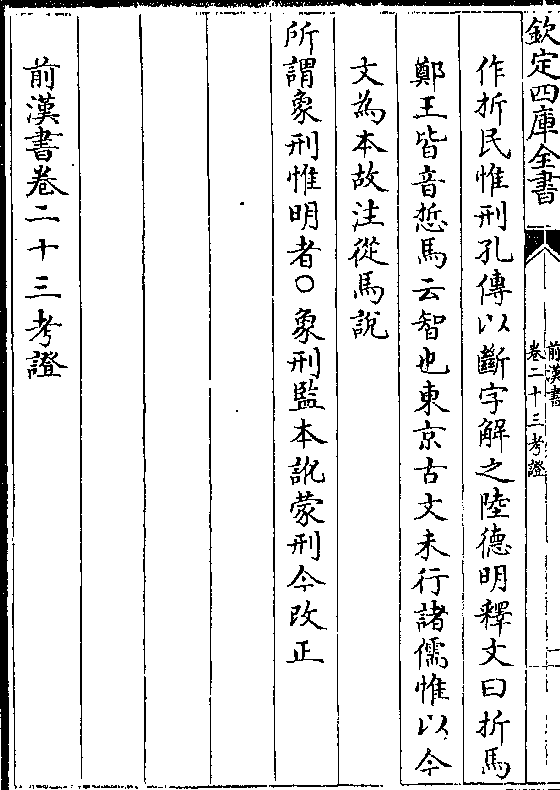 欽定四庫全書
前漢書
卷二十三考證
作折民惟刑孔傳以斷字解之陸德明釋文曰折馬
鄭王皆音悊馬云智也東京古文未行諸儒惟以今
文為本故注從馬說
所謂象刑惟明者○象刑監本訛蒙刑今改正
前漢書卷二十三考證